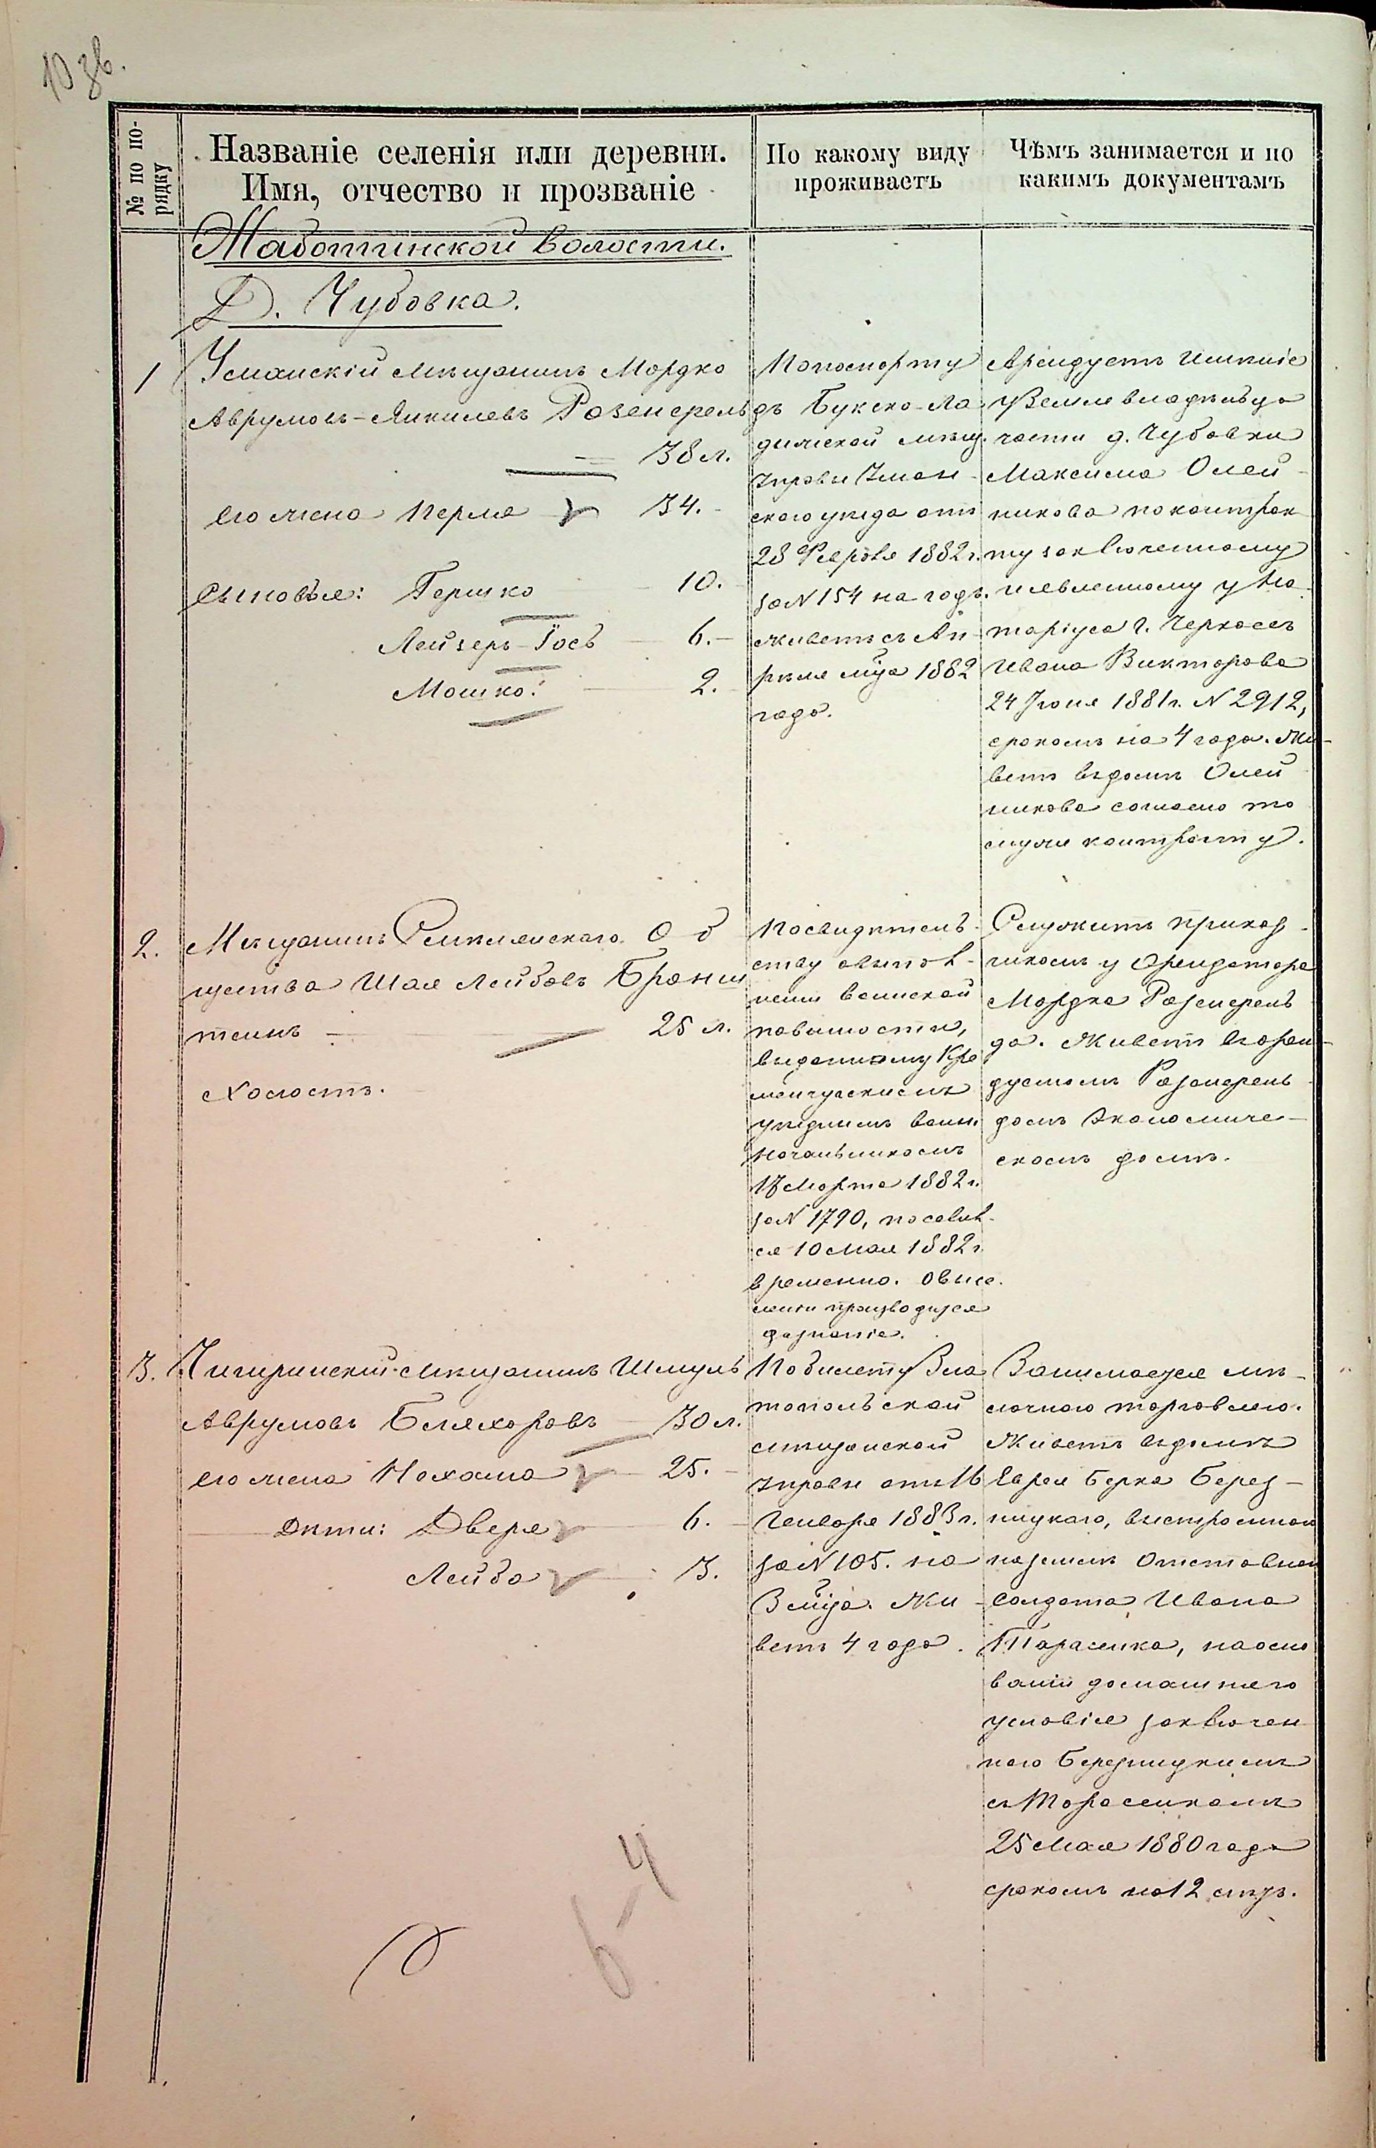 10 зв.
№ по по-
рядку
Названіе селенія или деревни.
Имя, отчество и прозваніе
По какому виду
проживаетъ
Чѣмъ занимается и по
какимъ документамъ
Жаботинской волости.
Д. Чубовка.
1
Уманскій мѣщанинъ Мордко
Аврумовъ-Янкелевъ Розенфельдъ
38 л.
его жена Перля 34.
Сыновья: Гершко 10.
Лейзеръ-Іось 6.
Мошко: 2.
По паспорту
Букско-Ла
димской мѣщ.
управы Уман
скаго уѣзда отъ
28 Февраля 1882 г.
за N 154 на годъ.
живетъ съ Ап
рѣля м-ца 1882
года.
Арендуетъ имѣніе
у Землевладѣльца
части д. Чубовки
Максима Олей
никова по контрак
ту заключенному
и явленному у Но
таріуса г. Черкасъ
Ивана Викторова
24 Іюня 1881 г. N 2912,
срокомъ на 4 года. Жи-
ветъ въ домѣ Олей
никова согласно то
му же контракту.
2.
Мѣщанинъ Смѣлянскаго Об
щества Шая Лейбовъ Бронш
тейнъ 25 л.
Холостъ.
По свидѣтель
ству о выпол-
неніи воинской
повинности,
выданному Кре
менчугскимъ
уѣзднымъ воин.
Начальникомъ
18 Марта 1882 г.
за N 1790, поселил-
ся 10 Мая 1882 г.
временно. О высе.
леніи производится
дознаніе.
Служитъ приказ-
чикомъ у Арендатора
Мордка Розенфель
да. Живетъ въ арен-
дуемомъ Розенфель
домъ экономиче-
скомъ домѣ.
3.
Чигиринскій мѣщанинъ Шмуль
Аврумовъ Бляхоровъ 30 л.
его жена Нахама 25.
Дѣти: Дверя 6.
Лейба 3.
По билету Зла
топольской
мѣщанской
управы отъ 16
Генваря 1883 г.
за N 105. на
3 м-ца. Жи
ветъ 4 года.
Занимается мѣ-
лочною торговлею.
Живетъ въ домѣ
Еврея Берка Берез-
ницкаго, выстроенном
на землѣ Отставнаго
солдата Ивана
Тарасенка, на осно
ваніи домашняго
условія заключен
наго Березницкимъ
съ Тарасенкомъ
25 Мая 1880 года
срокомъ на 12 лѣтъ.
6-4